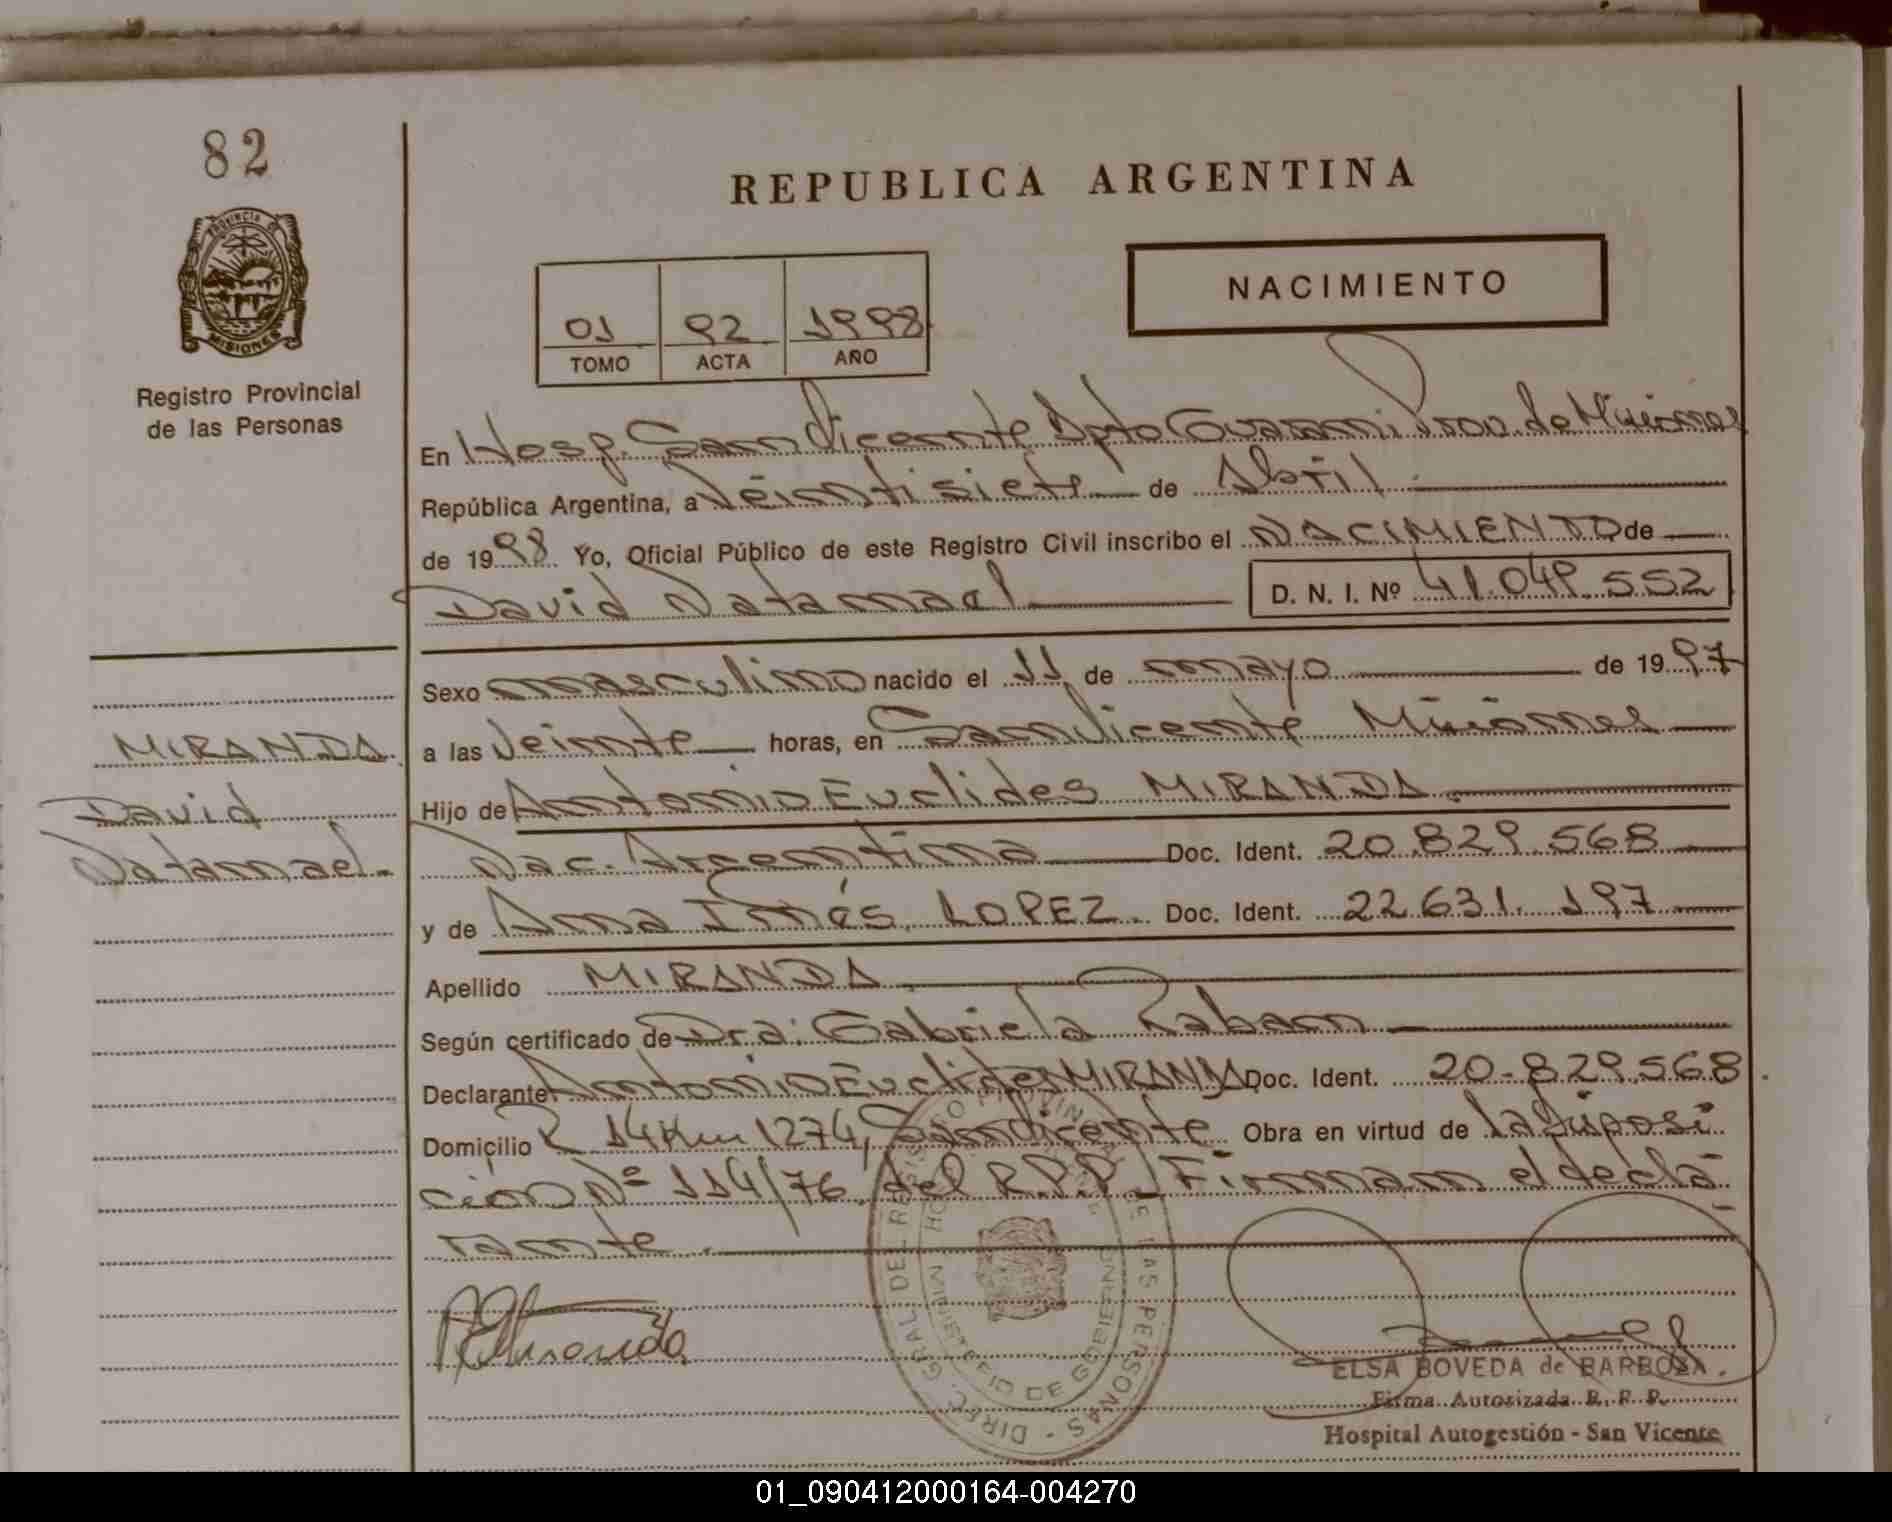 82
PROVINCIA DE
MISIONES
Registro Provincial
de las Personas
REPUBLICA ARGENTINA
01 92 1998
TOMO ACTA AÑO
NACIMIENTO
En Hosp. San Vicente Dpto Guarani Prov. de Misiones
República Argentina, a Veintisiete de Abril
de 1998 Yo, Oficial Público de este Registro Civil inscribo el NACIMIENTO de
David Natamael D. N. I. Nº 41.049.552
Sexo masculino nacido el 11 de mayo de 1997
a las Veinte horas, en San Vicente Misiones
Hijo de Antonio Euclides MIRANDA.
Nac. Argentina Doc. Ident. 20.829.568
y de Ana Inés LOPEZ. Doc. Ident. 22.631.197
Apellido MIRANDA.
Según certificado de Dra: Gabriela Raban
Declarante Antonio Euclides MIRANDA Doc. Ident. 20-829.568.
Domicilio R 14 Km 1274, San Vicente Obra en virtud de la Disposi
ción Nº 114/76 del R.P.P. Firman el decla
rante.
MIRANDA.
David
Natamael.-
DIREC. GRAL DEL REGISTRO PROVINCIAL DE LAS PERSONAS
MINISTERIO DE GOBIERNO
ELSA BOVEDA de BARBOZA.
Firma Autorizada R. P. P.
Hospital Autogestión - San Vicente
01_090412000164-004270